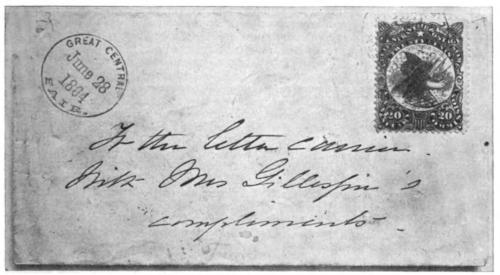 GREAT CENTRAL
June 28
1864
FAIR.
20 20
To the letter carrier.
With Mrs Gillespie's
compliments.